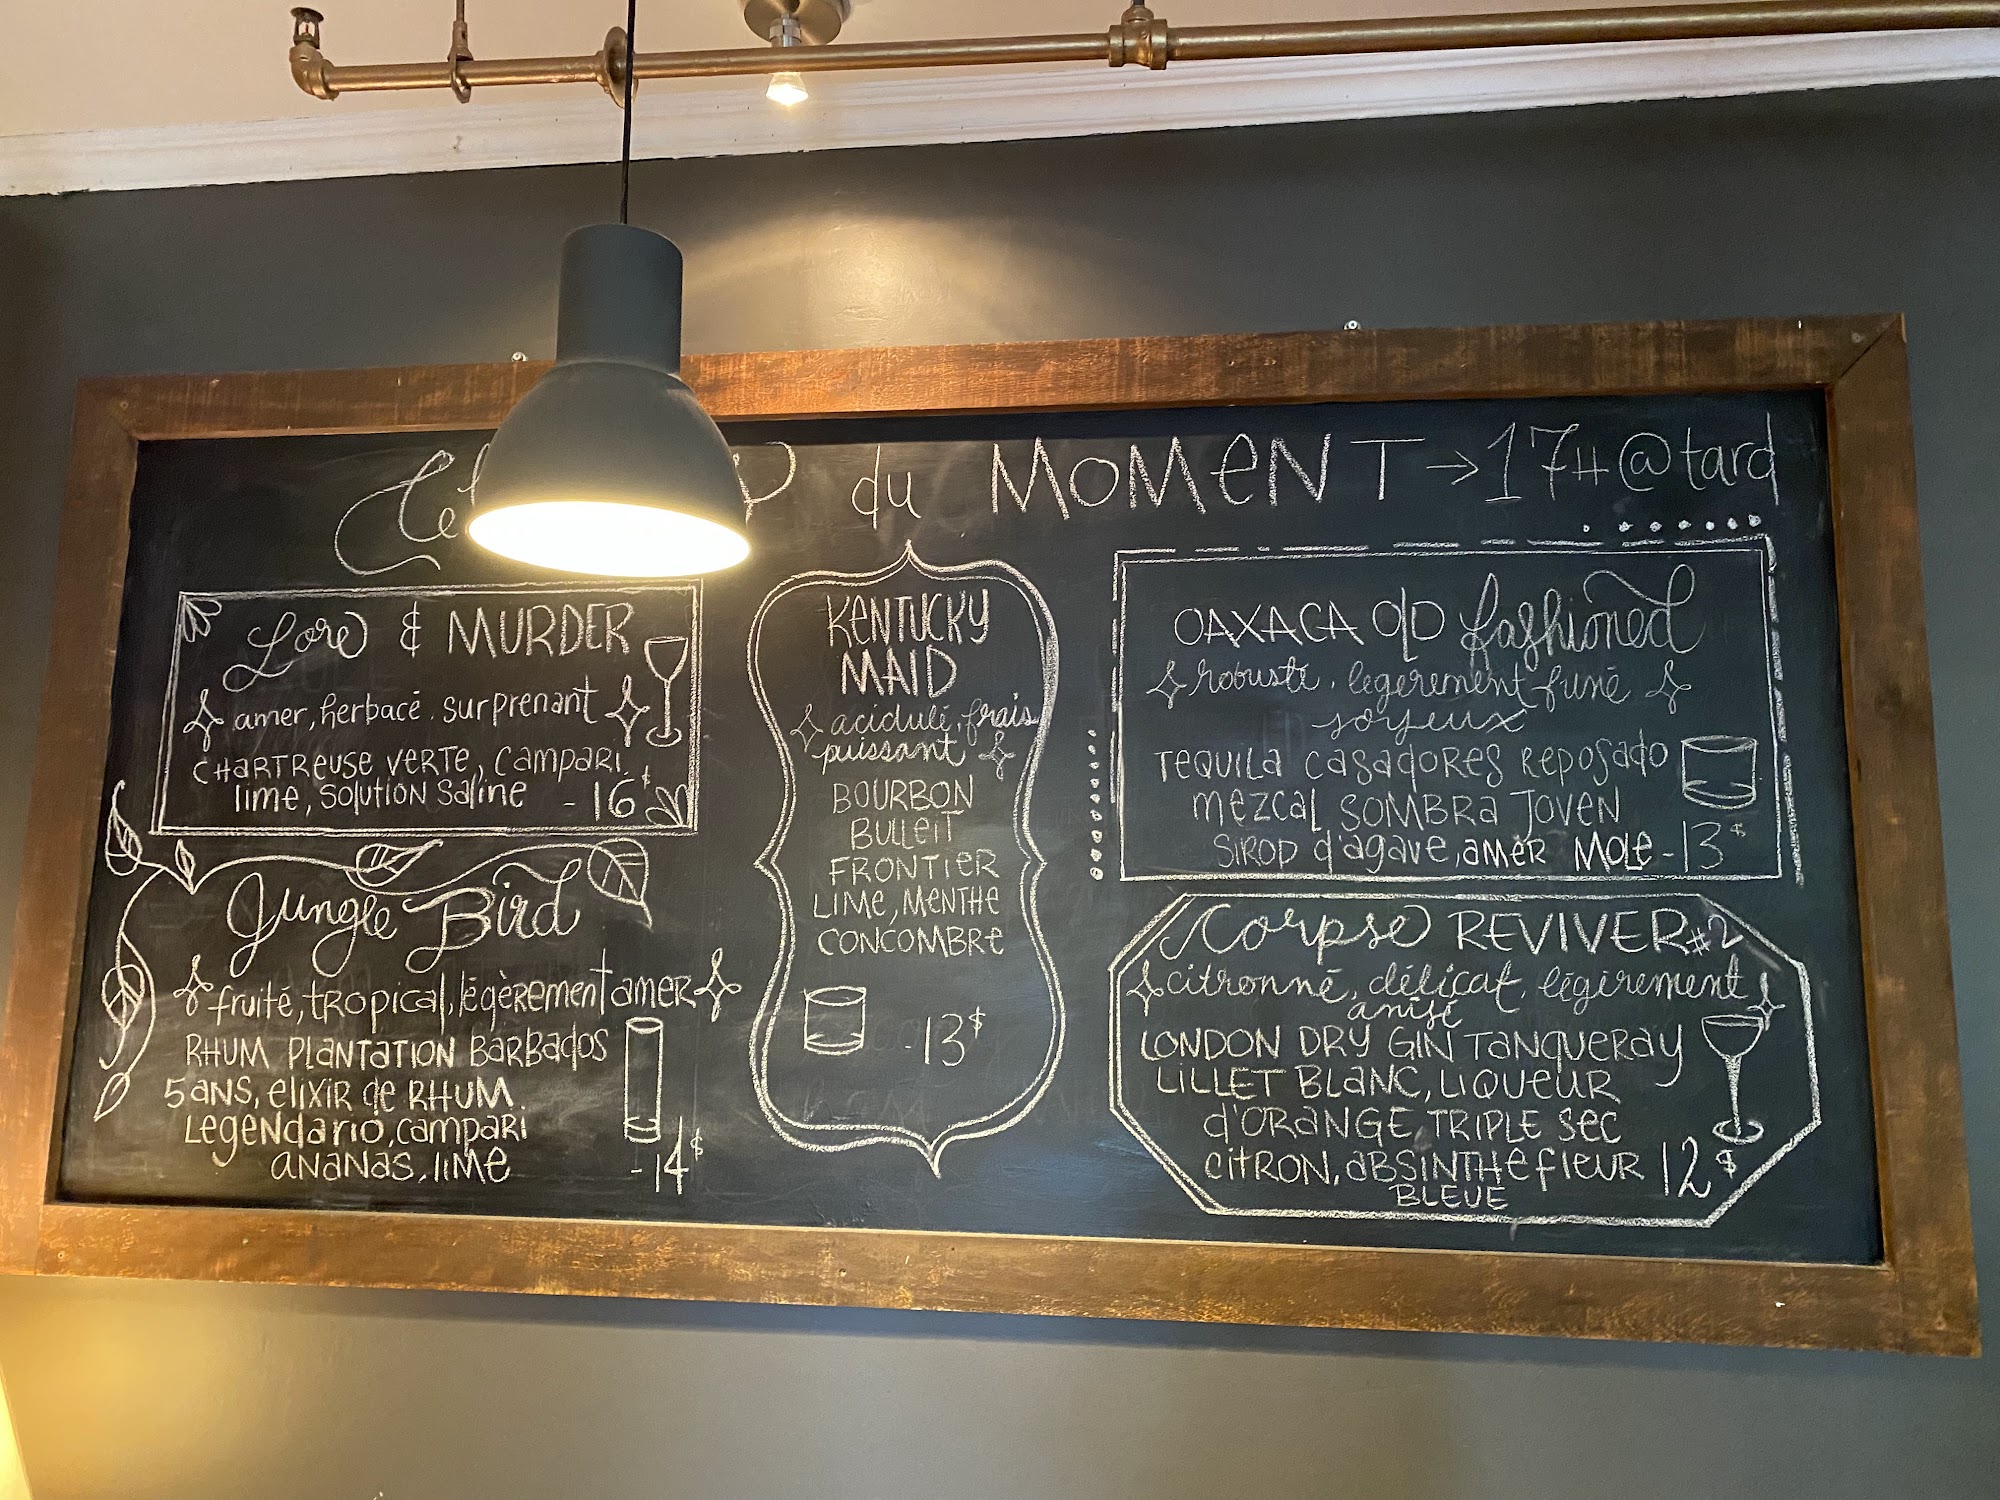 du MOMENT → 17H @ tard
Love & MURDER
amer, herbacé, surprenant
CHARTREUSE VERTE, CAMPARI,
lime, SOLUTION Saline -16$
Jungle Bird
fruité, tropical, légèrement amer
RHUM PLANTATION BARBADOS
5 ans, elixir de RHUM
Legendario, campari
ANANAS, LIME -14$
KENTUCKY
MAID
acidulé, frais
puissant
BOURBON
BULLEIT
FRONTIER
LIME, MENTHE
CONCOMBRE
-13$
OAXACA OLD fashioned
robuste, légèrement fumé
soyeux
TEQUILA CASADORES REPOSADO
MEZCAL SOMBRA JOVEN
SIROP d'agave, amer MOLE -13$
Corpse REVIVER #2
citronné, délicat, légèrement
anisé
LONDON DRY GIN TANQUERAY
LILLET BLANC, LIQUEUR
d'ORANGE TRIPLE SEC
CITRON, ABSINTHE FLEUR 12$
BLEUE